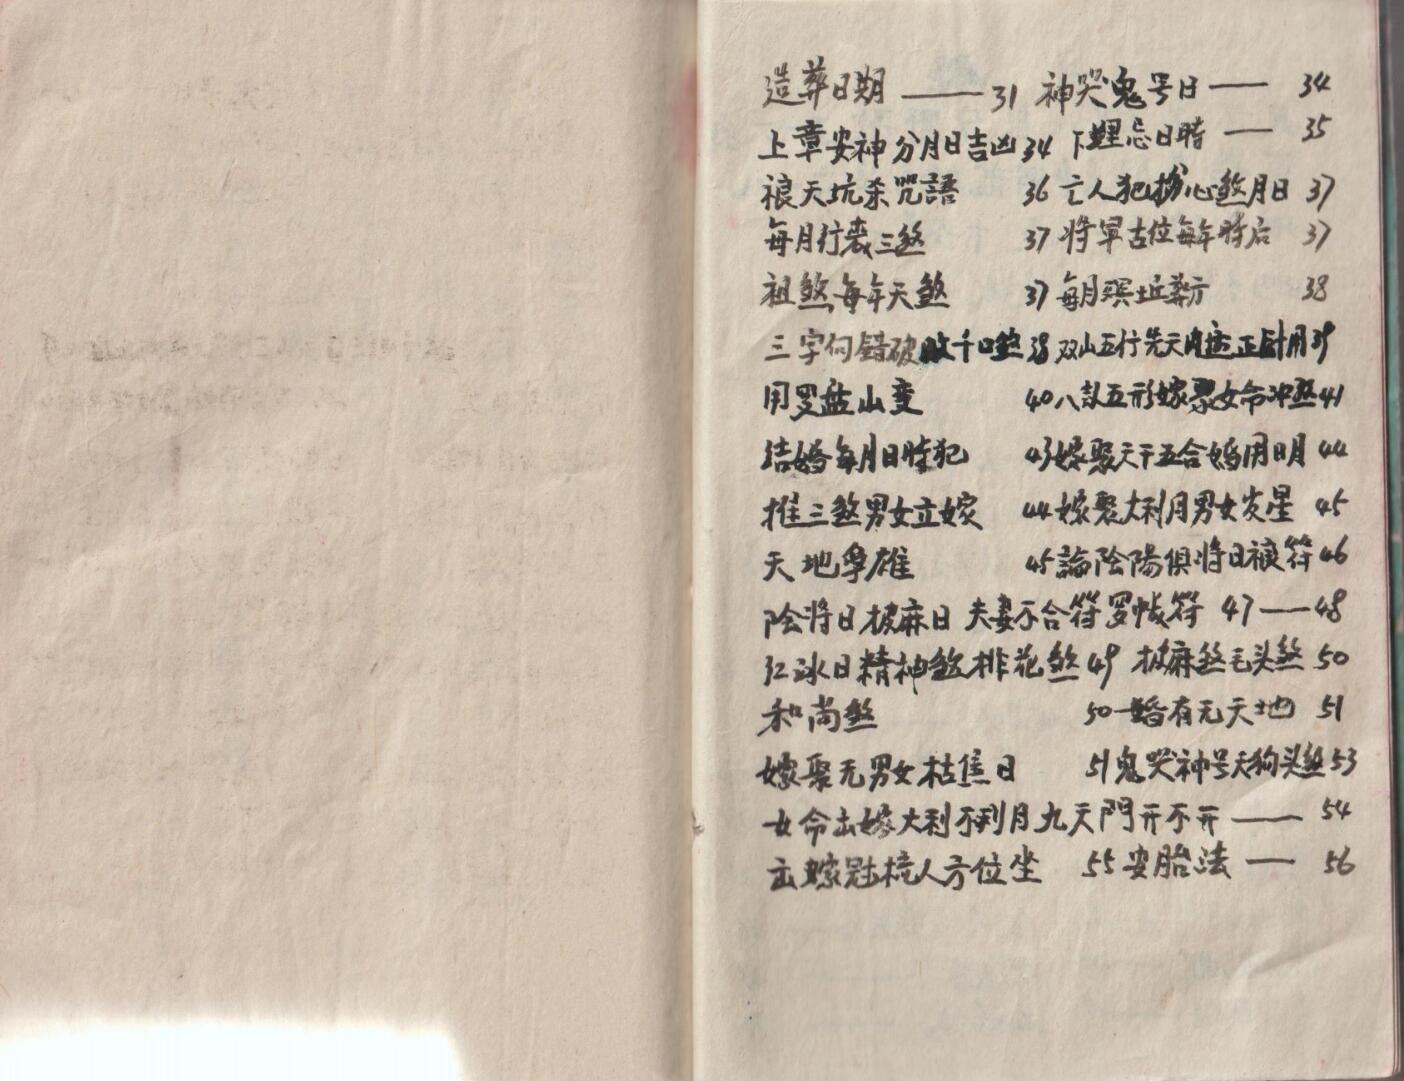 造葬日期 —— 31 神哭鬼号日 —— 34
上章安神分月日吉凶 34 下埋忌日時 —— 35
天坑杀咒語 36 亡人犯心煞月日 37
每月行丧三煞 37 将軍古位每年時后 37
祖煞每年天煞 37 每月 38
三字何錯破敗千口煞 38 双山五行先天内 正針用 39
用罗盘山变 40 八卦五形嫁娶女命冲煞 41
结婚每月日時犯 43 嫁娶天干五合婚用日月 44
推三煞男女立嫁 44 嫁娶大利月男女发星 45
天地争雄 45 論陰陽俱將日被符 46
陰將日披麻日 夫妻不合符罗帐符 47 —— 48
红冰日精神煞排花煞 49 披麻煞毛头煞 50
和尚煞 50 一婚有无天地 51
嫁娶无男女枯焦日 51 鬼哭神号天狗头煞 53
女命出嫁大利不利月九天門开不开 —— 54
出嫁冠梳人方位坐 55 安胎法 —— 56